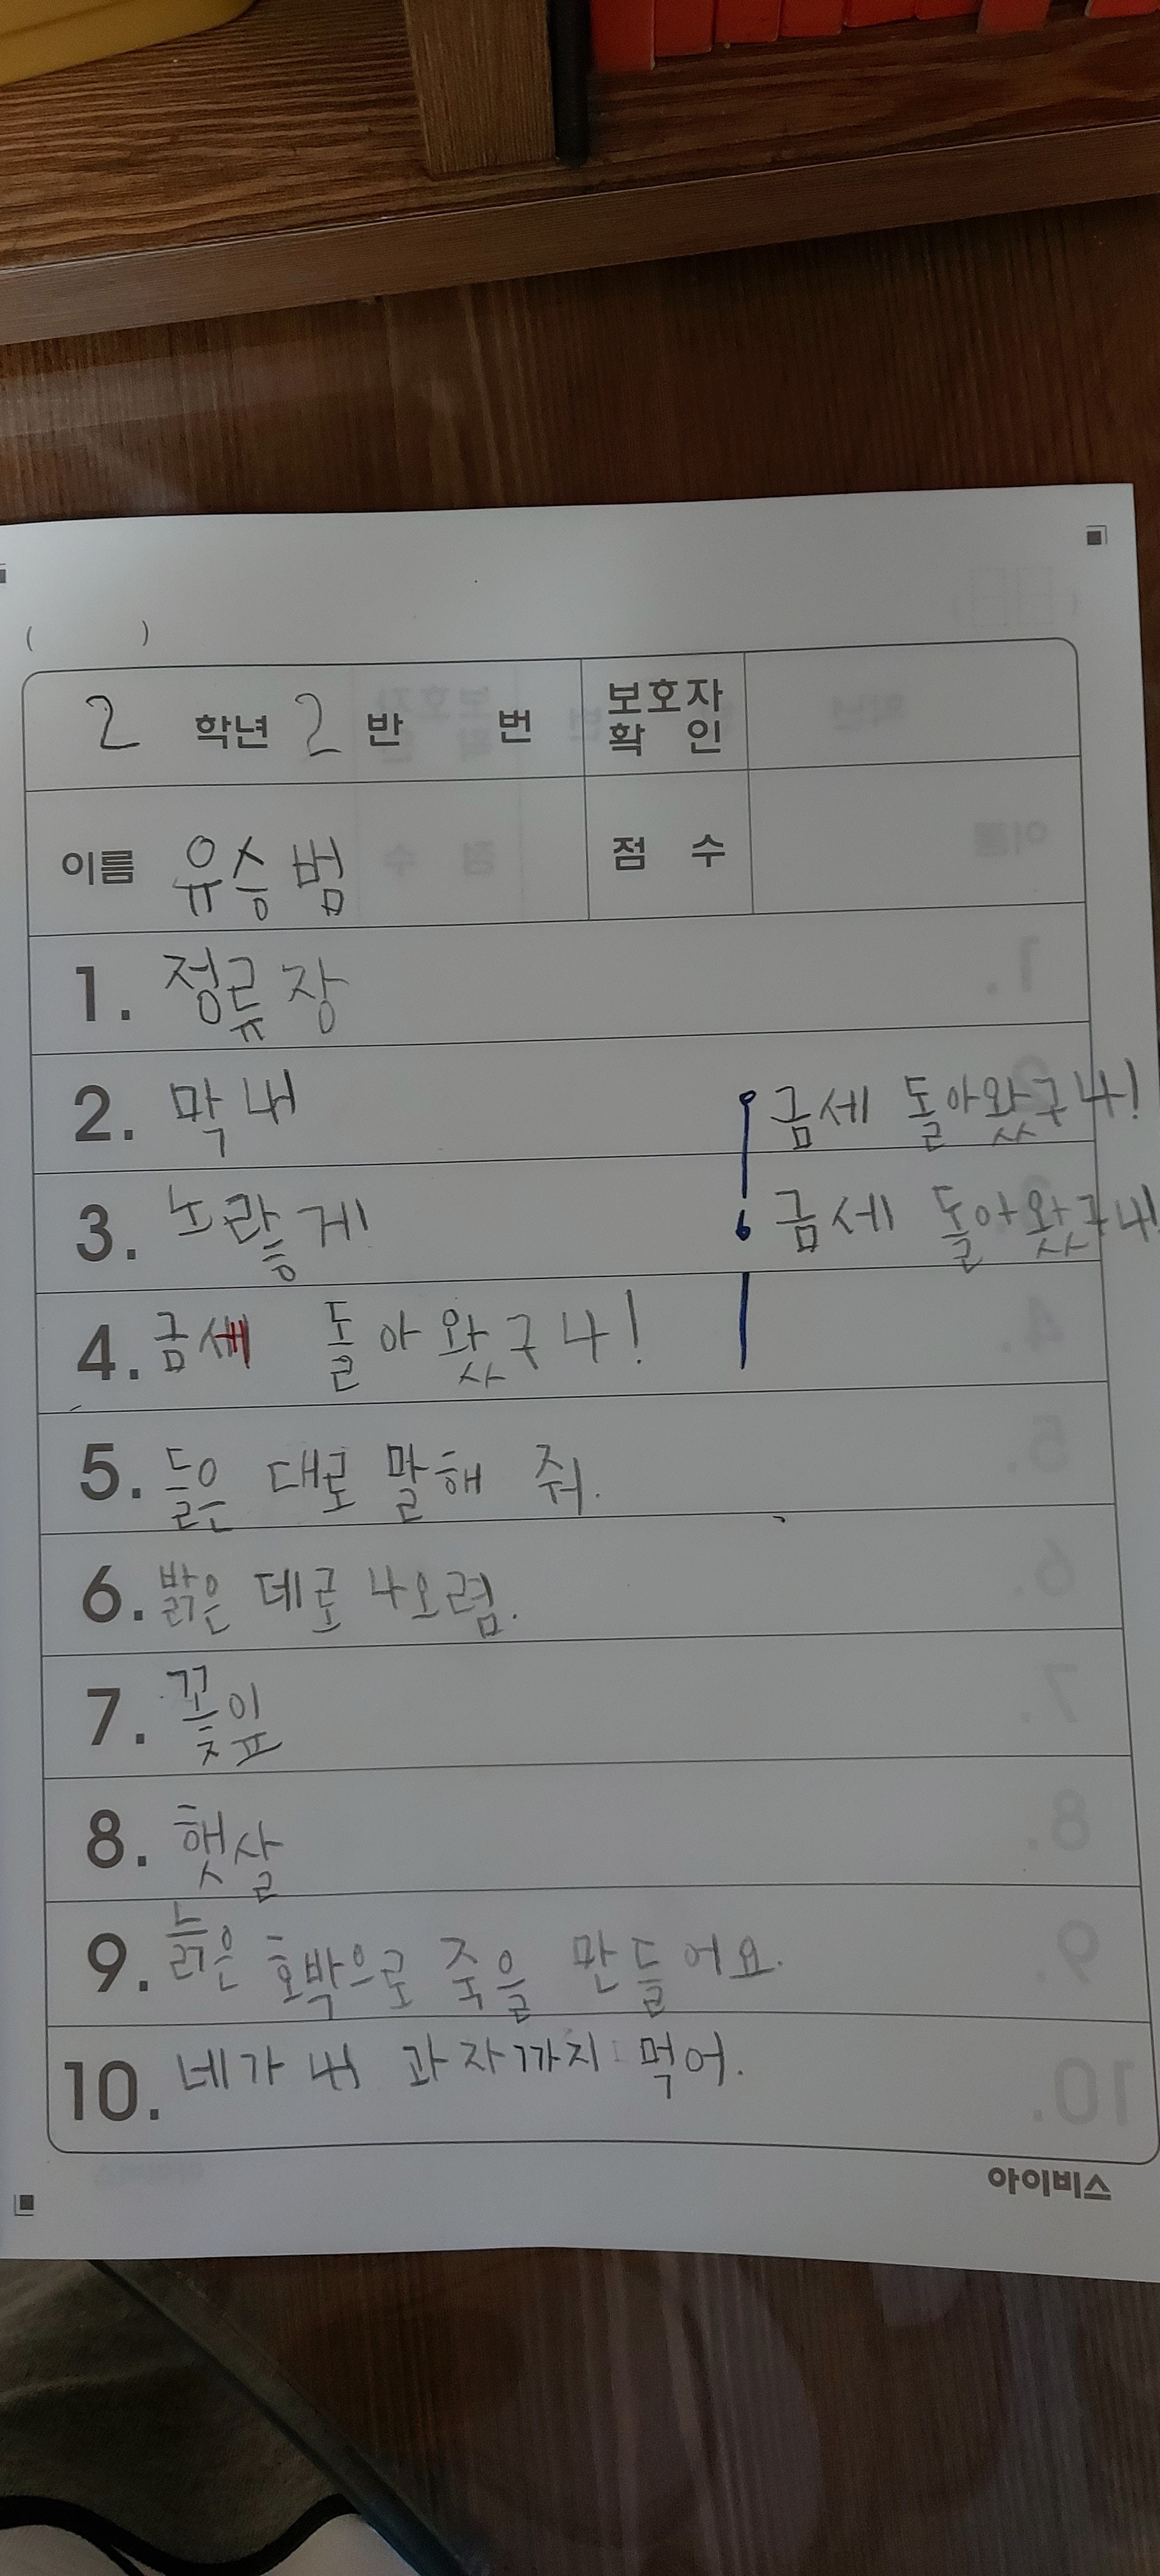 ( )
2 학년 2 반 번 보호자 확인
이름 유승범 점 수
1. 정류장
2. 막내
금세 돌아왔구나!
3. 노랗게
금세 돌아왔구나!
4. 금세 돌아왔구나!
5. 들은 대로 말해 줘.
6. 밝은 데로 나오렴.
7. 꽃잎
8. 햇살
9. 늙은 호박으로 죽을 만들어요.
10. 네가 내 과자까지 먹어.
아이비스